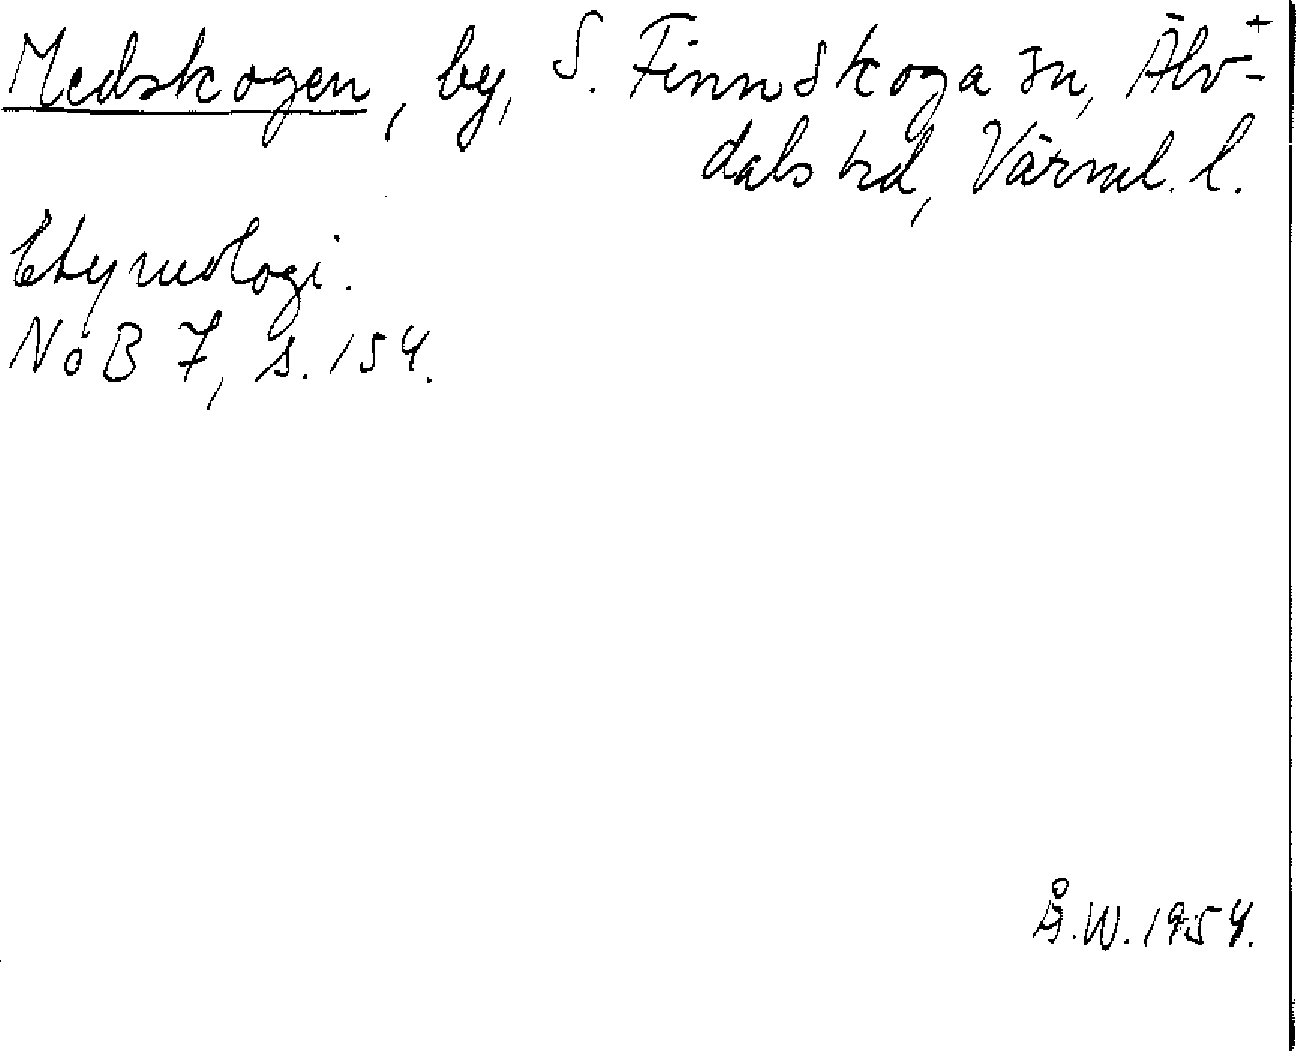 Medskogen, by, S. Finnskoga sn, Älv-
dals hd, Värml. l.
Etymologi.
NoB 7, s. 154.
Å.W. 1954.